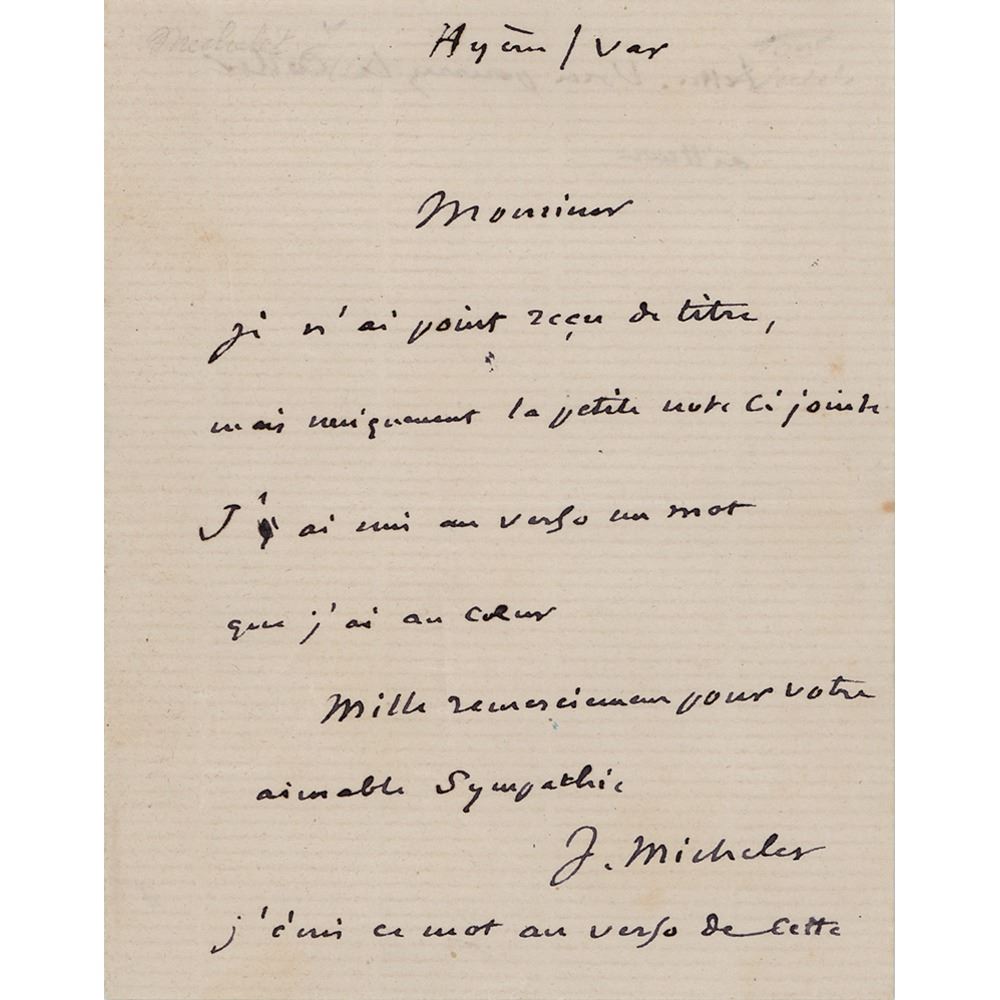 Hyères / Var
Monsieur
je n'ai point reçu de titre,
mais uniquement la petite note ci jointe
J'ai mis au verso un mot
que j'ai au cœur
Mille remerciemens pour votre
aimable sympathie
J. Michelet
j'écris ce mot au verso de cette